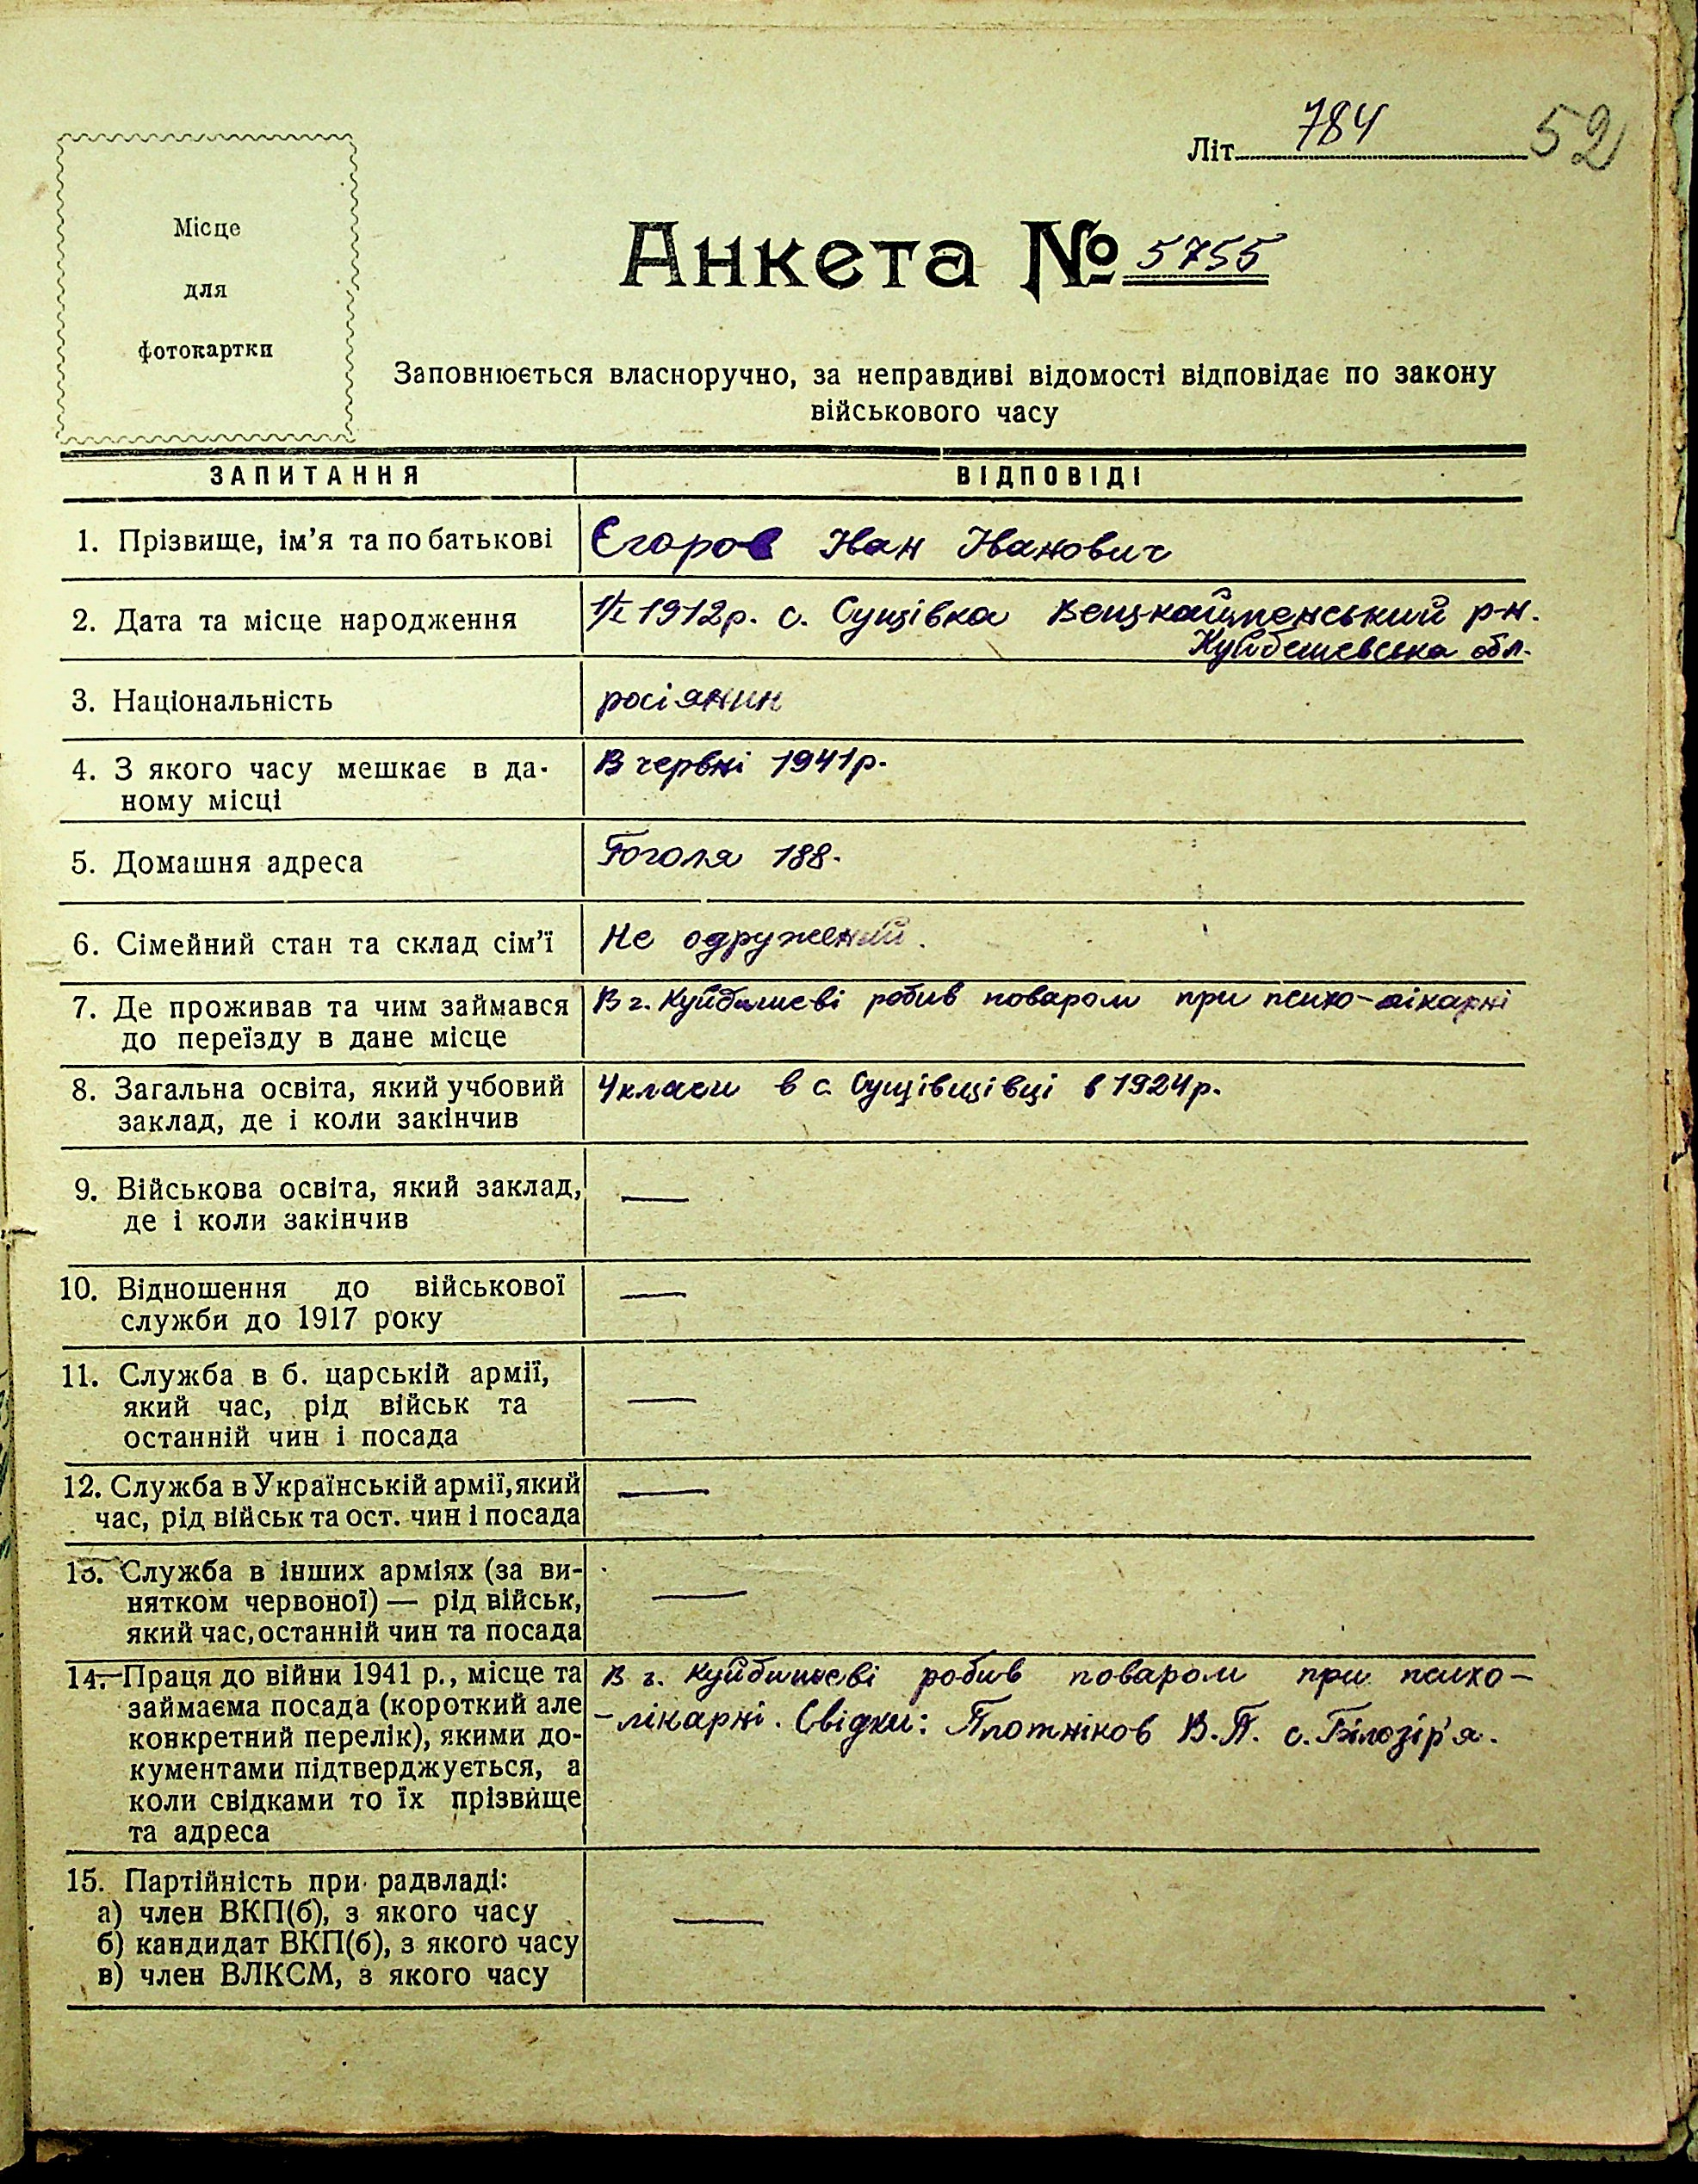 784
Літ.
52
Місце
для
фотокартки
Анкета № 5755
Заповнюється власноручно, за неправдиві відомості відповідає по закону
військового часу
ЗАПИТАННЯ
ВІДПОВІДІ
1. Прізвище, ім'я та по батькові
Єгоров Іван Іванович
2. Дата та місце народження
1/I 1912р. с. Сущівка р-н.
Куйбешевська обл.
3. Національність
росіянин
4. З якого часу мешкає в да-
ному місці
В червні 1941р.
5. Домашня адреса
Гоголя 188.
6. Сімейний стан та склад сім'ї
Не одружений.
7. Де проживав та чим займався
до переїзду в дане місце
В г. Куйбишеві робив поваром при психо-лікарні
8. Загальна освіта, який учбовий
заклад, де і коли закінчив
4 класи в с. Сущівщівці в 1924р.
9. Військова освіта, який заклад,
де і коли закінчив
—
10. Відношення до військової
служби до 1917 року
—
11. Служба в б. царській армії,
який час, рід військ та
останній чин і посада
—
12. Служба в Українській армії, який
час, рід військ та ост. чин і посада
—
13. Служба в інших арміях (за ви-
нятком червоної) — рід військ,
який час, останній чин та посада
—
14. Праця до війни 1941 р., місце та
займаєма посада (короткий але
конкретний перелік), якими до-
кументами підтверджується, а
коли свідками то їх прізвище
та адреса
В г. Куйбишеві робив поваром при психо-
-лікарні. Свідки: Плотніков В.П. с. Білозір'я.
15. Партійність при радвладі:
а) член ВКП(б), з якого часу
б) кандидат ВКП(б), з якого часу
в) член ВЛКСМ, з якого часу
—